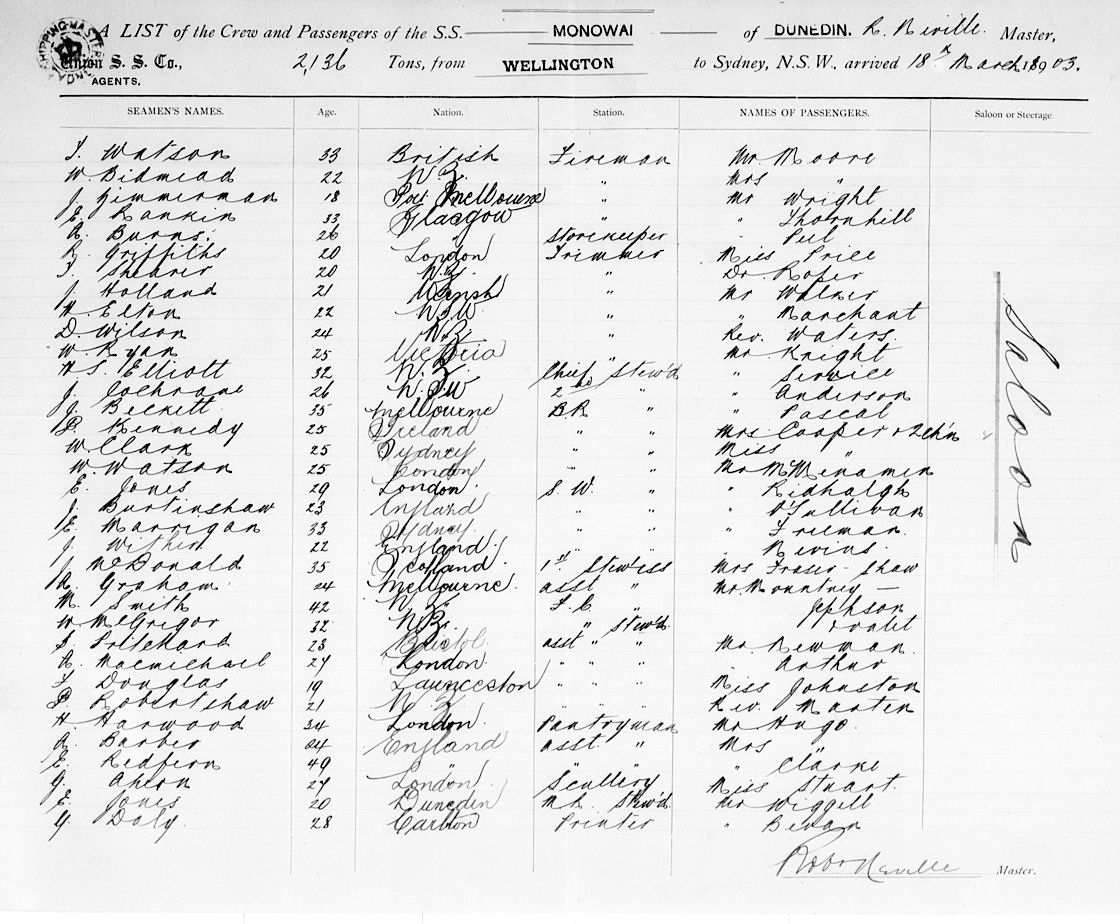 A LIST of the Crew and Passengers of the S.S. MONOWAI of DUNEDIN. R. Neville. Master,
Union S. S. Co., 2,136 Tons, from WELLINGTON to Sydney, N.S.W., arrived 18th March 1903.
AGENTS.
SEAMEN'S NAMES. Age. Nation. Station. NAMES OF PASSENGERS. Saloon or Steerage
Watson 33 British Fireman Mr Moore
W. Bidmead 22 N.Z. " Mrs "
J. Zimmerman 18 Port Melbourne " Mr Wright
E. Rankin 33 Glasgow " " Thornhill
Burns 26 " Storekeeper " Peel
R. Griffiths 20 London Trimmer Miss Price
Shearer 20 N.Z. " Dr Roper
J. Holland 21 " Mr Walker
H. Elton 22 N.S.W " " Marchant
D. Wilson 24 N.Z. " Rev. Waters
W. Ryan 25 Victoria " Mr Knight
H.S. Elliott 32 N.Z. Chief Stew'd " Service
J. Cochrane 26 N.S.W 2nd " " Anderson
J. Beckett 35 Melbourne B.R. " " Pascal
Kennedy 25 Ireland " " Mrs Cooper & 2 ch'n
W. Clark 25 Sydney " " Miss "
W. Watson 25 London " " Mr McMenamen
E. Jones 29 London S.W. " " Ridhalgh
J. Burtinshaw 23 England " " " O'Sullivan
E. Marrigan 33 Sydney " " " Freeman
J. 22 England " " " Nevins
J. McDonald 35 Scotland 1st Stew'ess Mrs Fraser-Shaw
Graham 24 Melbourne asst " Mr Mountney —
M. Smith 42 N.Z. F.C. " Jephson
W. McGrigor 32 N.Z. " Stew'd
Pritchard 23 Bristol asst " " Mr Newman
Macmichael 27 London " " " " Arthur
Douglas 19 Launceston " " " Miss Johnston
Robertshaw 21 N.Z. " " " Rev. Marten
H. Harwood 34 London Pantryman Mr Hugo
Barber 24 England asst " Mrs "
E. Redfern 49 " " " Clarke
G. 27 London Scullery Miss Stuart
E. Jones 20 Dunedin Stew'd Mr Wiggell
Daly 28 Carlton Printer " Bevan
Saloon
Robt Neville Master.